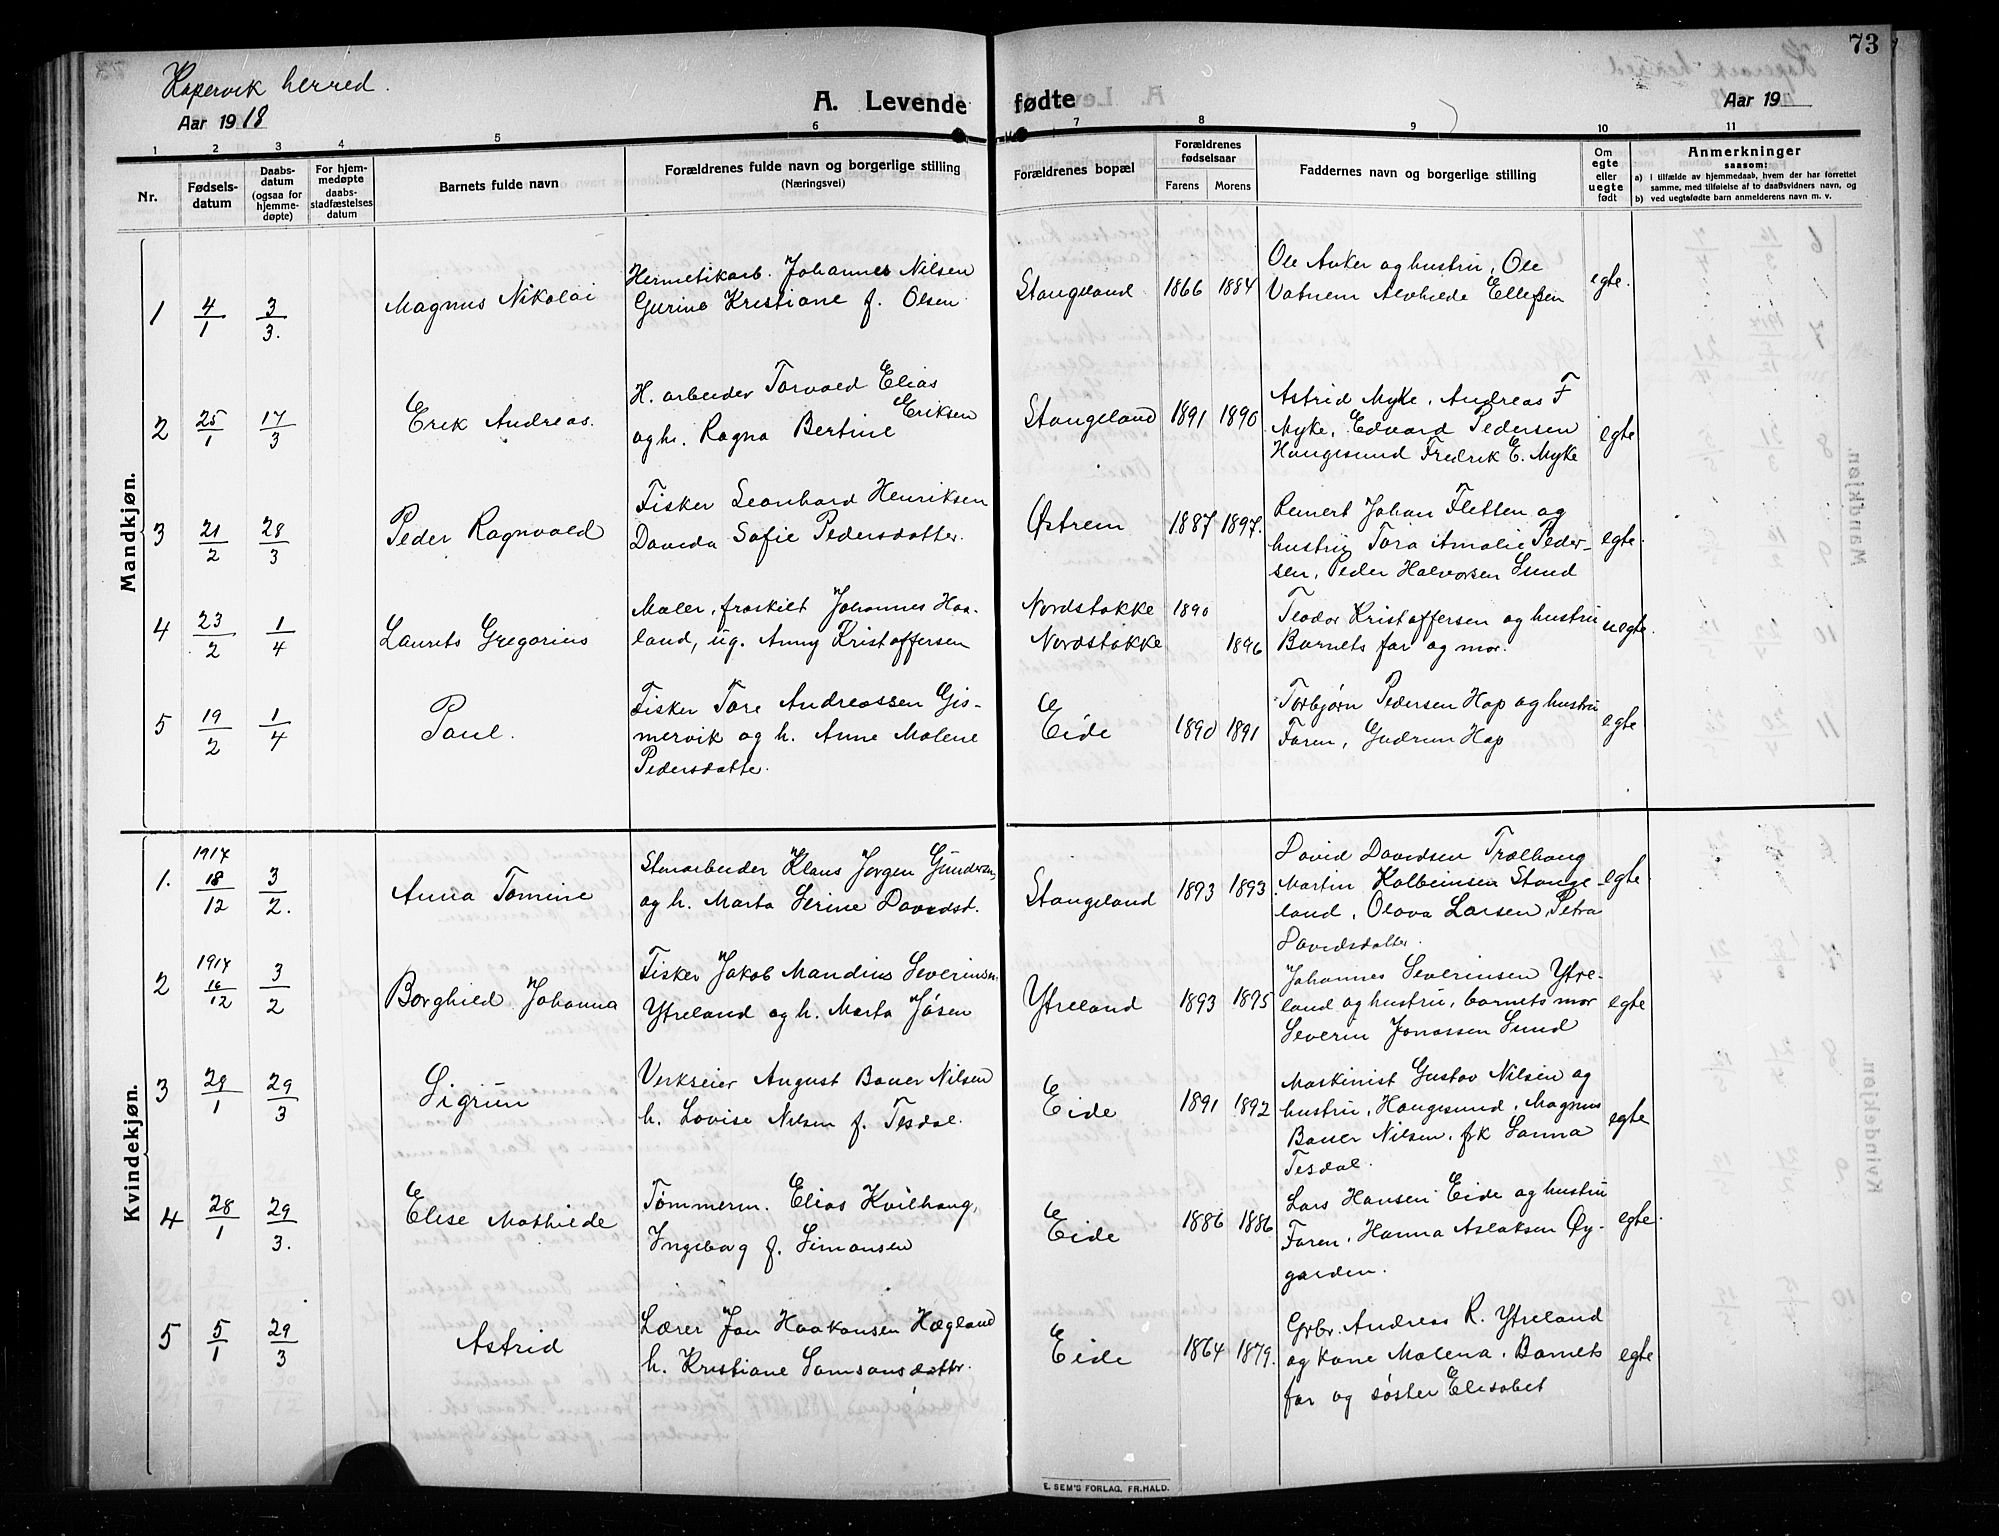 73
Kopervik herred.
Aar 1918
A. Levende fødte
Aar 19
1 2 3 4 5 6 7 8 9 10 11
Nr.
Fødsels-
datum
Daabs-
datum
(ogsaa for
hjemme-
døpte)
For hjem-
medøpte
daabs-
stadfæstelses
datum
Barnets fulde navn
Forældrenes fulde navn og borgerlige stilling
(Næringsvei)
Forældrenes bopæl
Forældrenes
fødselsaar
Farens Morens
Faddernes navn og borgerlige stilling
Om
egte
eller
uegte
født
Anmerkninger
saasom:
a) i tilfælde av hjemmedaab, hvem der har forrettet
samme, med tilføielse af to daabsvidners navn, og
b) ved uegtefødte barn anmelderens navn m. v.
Mandkjøn.
1 4/1 3/3. Magnus Nikolai
Hermetikarb. Johannes Nilsen
Gurine Kristiane f. Olsen.
Stangeland 1866 1884
Ole Anker og hustru, Ole
Vatnem Alvhilde Ellefsen
egte.
2 25/1 17/3 Erik Andreas.
H. arbeider Torvald Elias
Eriksen
og h. Ragna Bertine
Stangeland 1891 1890
Astrid Myke, Andreas F
Myke, Edvard Pedersen
Haugesund Fredrik E. Myke
egte
3 21/2 28/3 Peder Ragnvald
Fisker Leonhard Henriksen
Davida Sofie Pedersdatter.
Østrem 1887 1897.
Reinert Johan Fletten og
hustru Tora Amalie Peder-
sen, Peder Halvorsen Sund
egte.
4 23/2 1/4 Laurits Gregorius
Maler, fraskilt Johannes Haa-
land, ug. Anny Kristoffersen
Nordstokke 1890
Nordstokke 1896
Teodor Kristoffersen og hustru
Barnets far og mor.
uegte.
5 19/2 1/4 Paul.
Fisker Tore Andreassen Gis-
mervik og h. Anne Malene
Pedersdatte.
Eide 1890 1891
Torbjørn Pedersen Hop og hustru
Faren, Gudrun Hop
egte
Kvindekjøn.
1. 1917 18/12 3/2. Anna Tomine
Stenarbeider Klaus Jørgen Gundersen,
og h. Marta Serine Davidsd.
Stangeland 1893 1893
David Davidsen Trælhaug
Martin Kolbeinsen Stange-
land, Olava Larsen, Petra
Davidsdatter.
egte.
2 1917 16/12 3/2 Borghild Johanna
Fisker Jakob Mandius Severinsen
Ytreland og h. Marta Jøsen
Ytreland 1893 1895
Johannes Severinsen Ytre-
land og hustru, barnets mor
Severin Jonassen Sund
egte
3 29/1 29/3 Sigrun
Verkseier August Bauer Nilsen
h. Lovise Nilsen f. Tesdal.
Eide 1891 1892
Maskinist Gustav Nilsen og
hustru, Haugesund, Magnus
Bauer Nilsen, frk Sanna
Tesdal.
egte
4 28/1 29/3. Elise Mathilde
Tømmerm. Elias Kvilhaug,
Ingeborg f. Simonsen
Eide 1886 1886
Lars Hansen Eide og hustru
Faren, Hanna Aslaksen Øy-
garden.
egte.
5 5/1 29/3 Astrid
Lærer Jon Haakonsen Hægland
h. Kristiane Samsonsdattr.
Eide 1864 1879.
Grbr. Andreas R. Ytreland
og kone Malena, Barnets
far og søster Elisabet
egte
E. SEM'S FORLAG, FR.HALD.